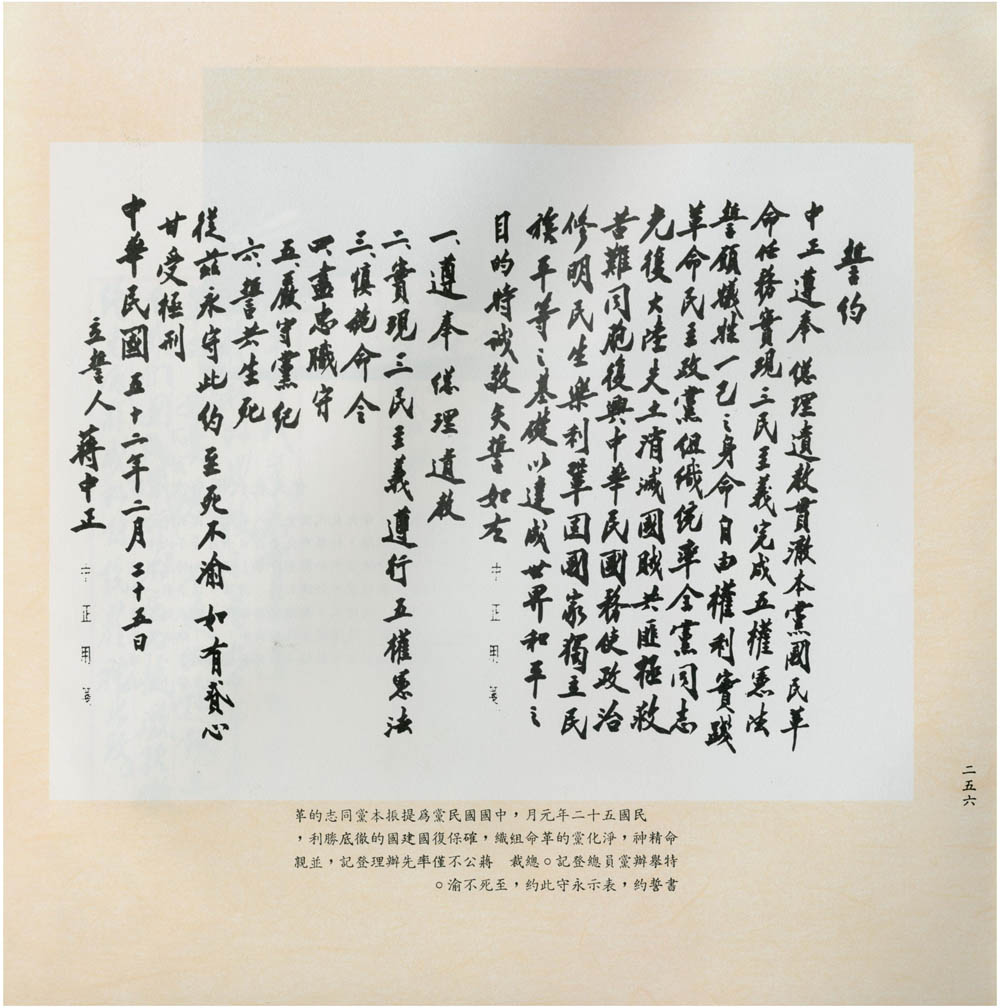 誓約
中正遵奉 總理遺教貫澈本黨國民革
命任務實現三民主義完成五權憲法
誓願犧牲一己之身命自由權利實踐
革命民主政黨組織統率全黨同志
光復大陸失土消滅國賊共匪拯救
苦難同胞復興中華民國務使政治
修明民生樂利鞏固國家獨立民
族平等之基礎以達成世界和平之
目的特誠敬矢誓如左
中正用箋
一、遵奉 總理遺教
二、實現三民主義遵行五權憲法
三、慎命令
四、盡忠職守
五、嚴守黨紀
六、誓共生死
從茲永守此約至死不渝如有貳心
甘受極刑
中華民國五十二年二月二十五日
立誓人 蔣中正
中正用箋
民國五十二年元月，中國國民黨為提振本黨同志的革
命精神，淨化黨的革命組織，確保復國建國的徹底勝利，
特舉辦黨員總登記。總裁 蔣公不僅率先辦理登記，並親
書誓約，表示永守此約，至死不渝。
二五六